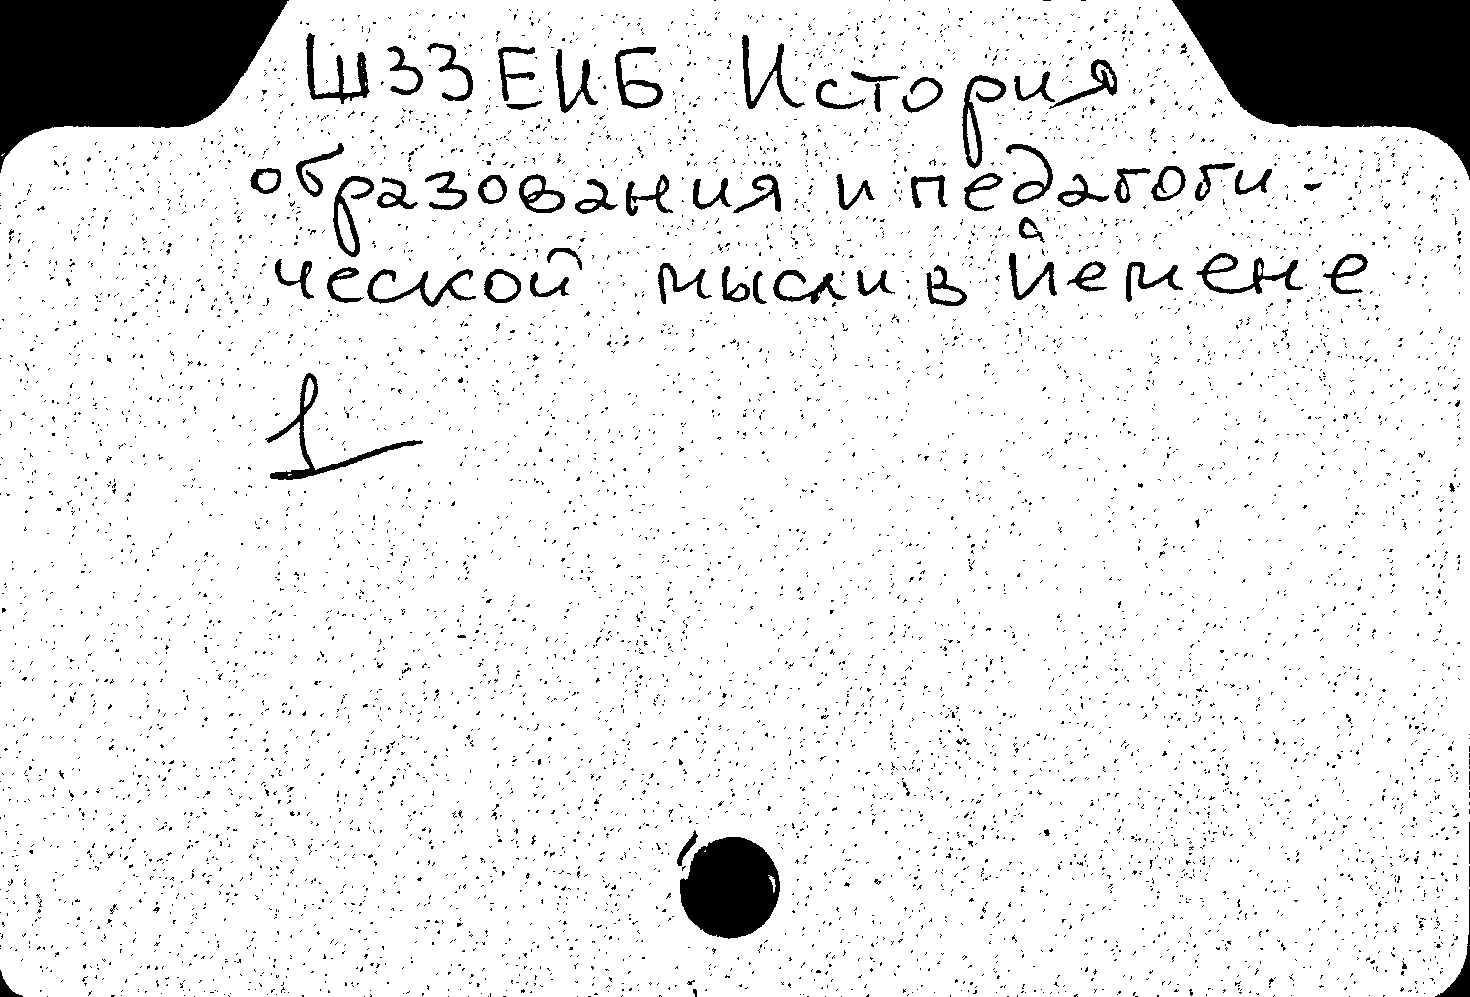 Ш33ЕИБ История
образования и педагоги-
ческой мысли в Йемене
1